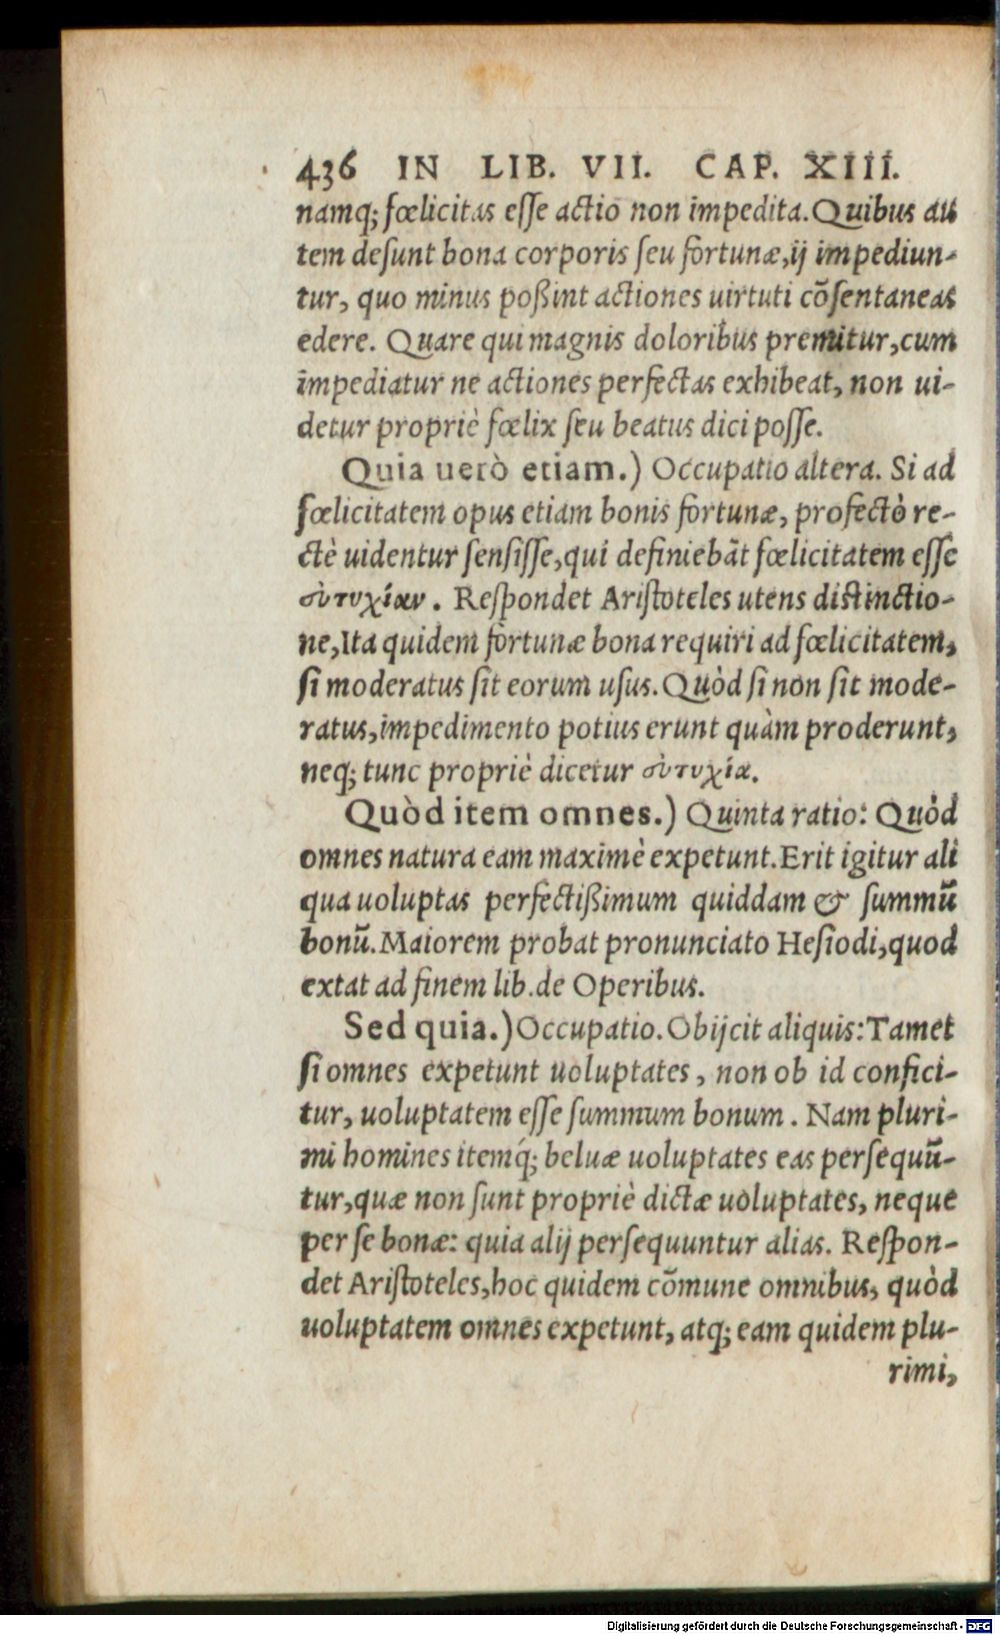 436 IN LIB. VII. CAP. XIII.
namq; fœlicitas eſſe actio non impedita. Quibus au
tem deſunt bona corporis ſeu fortunæ, ij impediun-
tur, quo minus poßint actiones uirtuti cõſentaneas
edere. Quare qui magnis doloribus premitur, cum
impediatur ne actiones perfectas exhibeat, non ui-
detur propriè fœlix ſeu beatus dici poſſe.
Quia uerò etiam.) Occupatio altera. Si ad
fœlicitatem opus etiam bonis fortunæ, profectò re-
ctè uidentur ſenſiſſe, qui definiebãt fœlicitatem eſſe
εὐτυχίαν. Reſpondet Ariſtoteles utens diſtinctio-
ne, Ita quidem fortunæ bona requiri ad fœlicitatem,
ſi moderatus ſit eorum uſus. Quòd ſi non ſit mode-
ratus, impedimento potius erunt quàm proderunt,
neq; tunc propriè dicetur εὐτυχία.
Quòd item omnes.) Quinta ratio: Quòd
omnes natura eam maximè expetunt. Erit igitur ali
qua uoluptas perfectißimum quiddam & ſummũ
bonũ. Maiorem probat pronunciato Heſiodi, quod
extat ad finem lib. de Operibus.
Sed quia.) Occupatio. Obijcit aliquis: Tamet
ſi omnes expetunt uoluptates, non ob id confici-
tur, uoluptatem eſſe ſummum bonum. Nam pluri-
mi homines itemq́; beluæ uoluptates eas perſequũ-
tur, quæ non ſunt propriè dictæ uoluptates, neque
per ſe bonæ: quia alij perſequuntur alias. Reſpon-
det Ariſtoteles, hoc quidem cõmune omnibus, quòd
uoluptatem omnes expetunt, atq; eam quidem plu-
rimi,
Digitalisierung gefördert durch die Deutsche Forschungsgemeinschaft - DFG